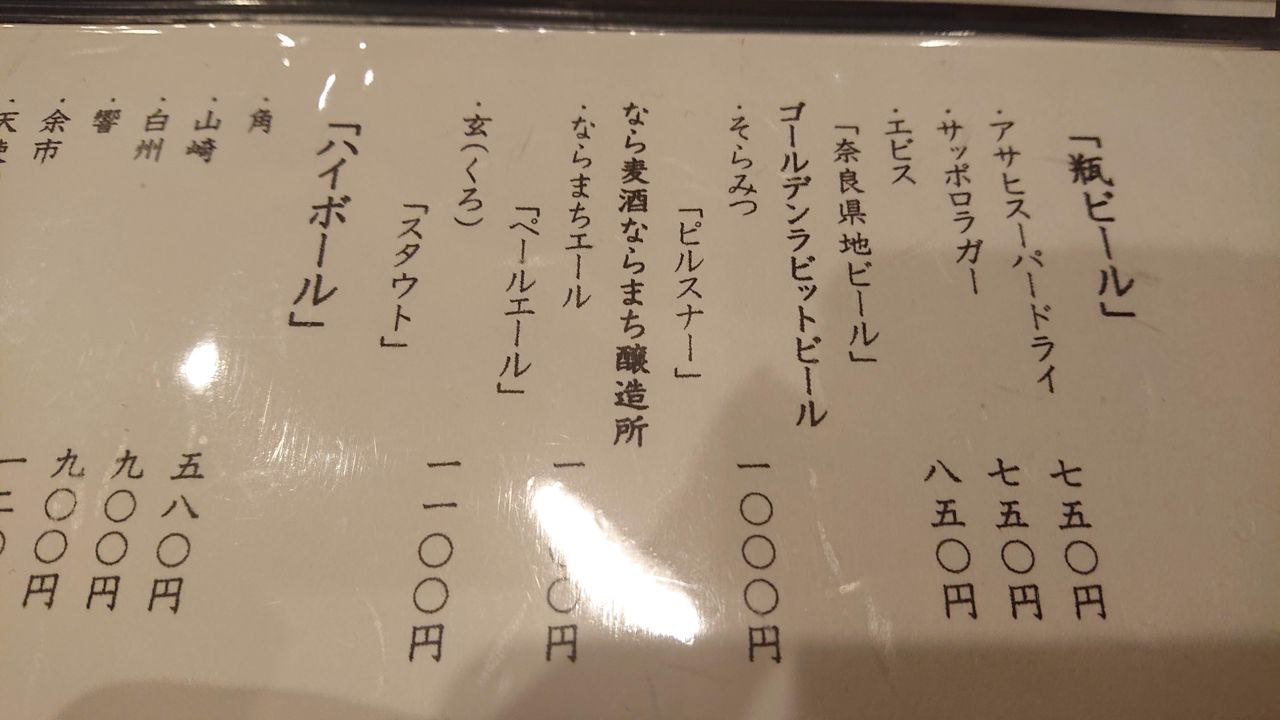 「瓶ビール」
・アサヒスーパードライ 七五〇円
・サッポロラガー 七五〇円
・エビス 八五〇円
「奈良県地ビール」
ゴールデンラビットビール
・そらみつ
「ピルスナー」 一〇〇〇円
なら麦酒ならまち醸造所
・ならまちエール
「ペールエール」
・玄(くろ)
「スタウト」 一一〇〇円
「ハイボール」
・角 五八〇円
・山崎 九〇〇円
・白州 九〇〇円
・響
・余市